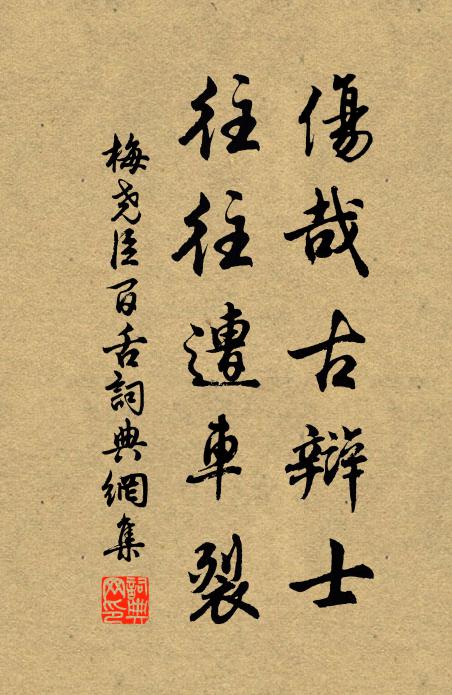 傷哉古辯士
往往遭車裂
梅堯臣百舌詞典網集
詞典網印